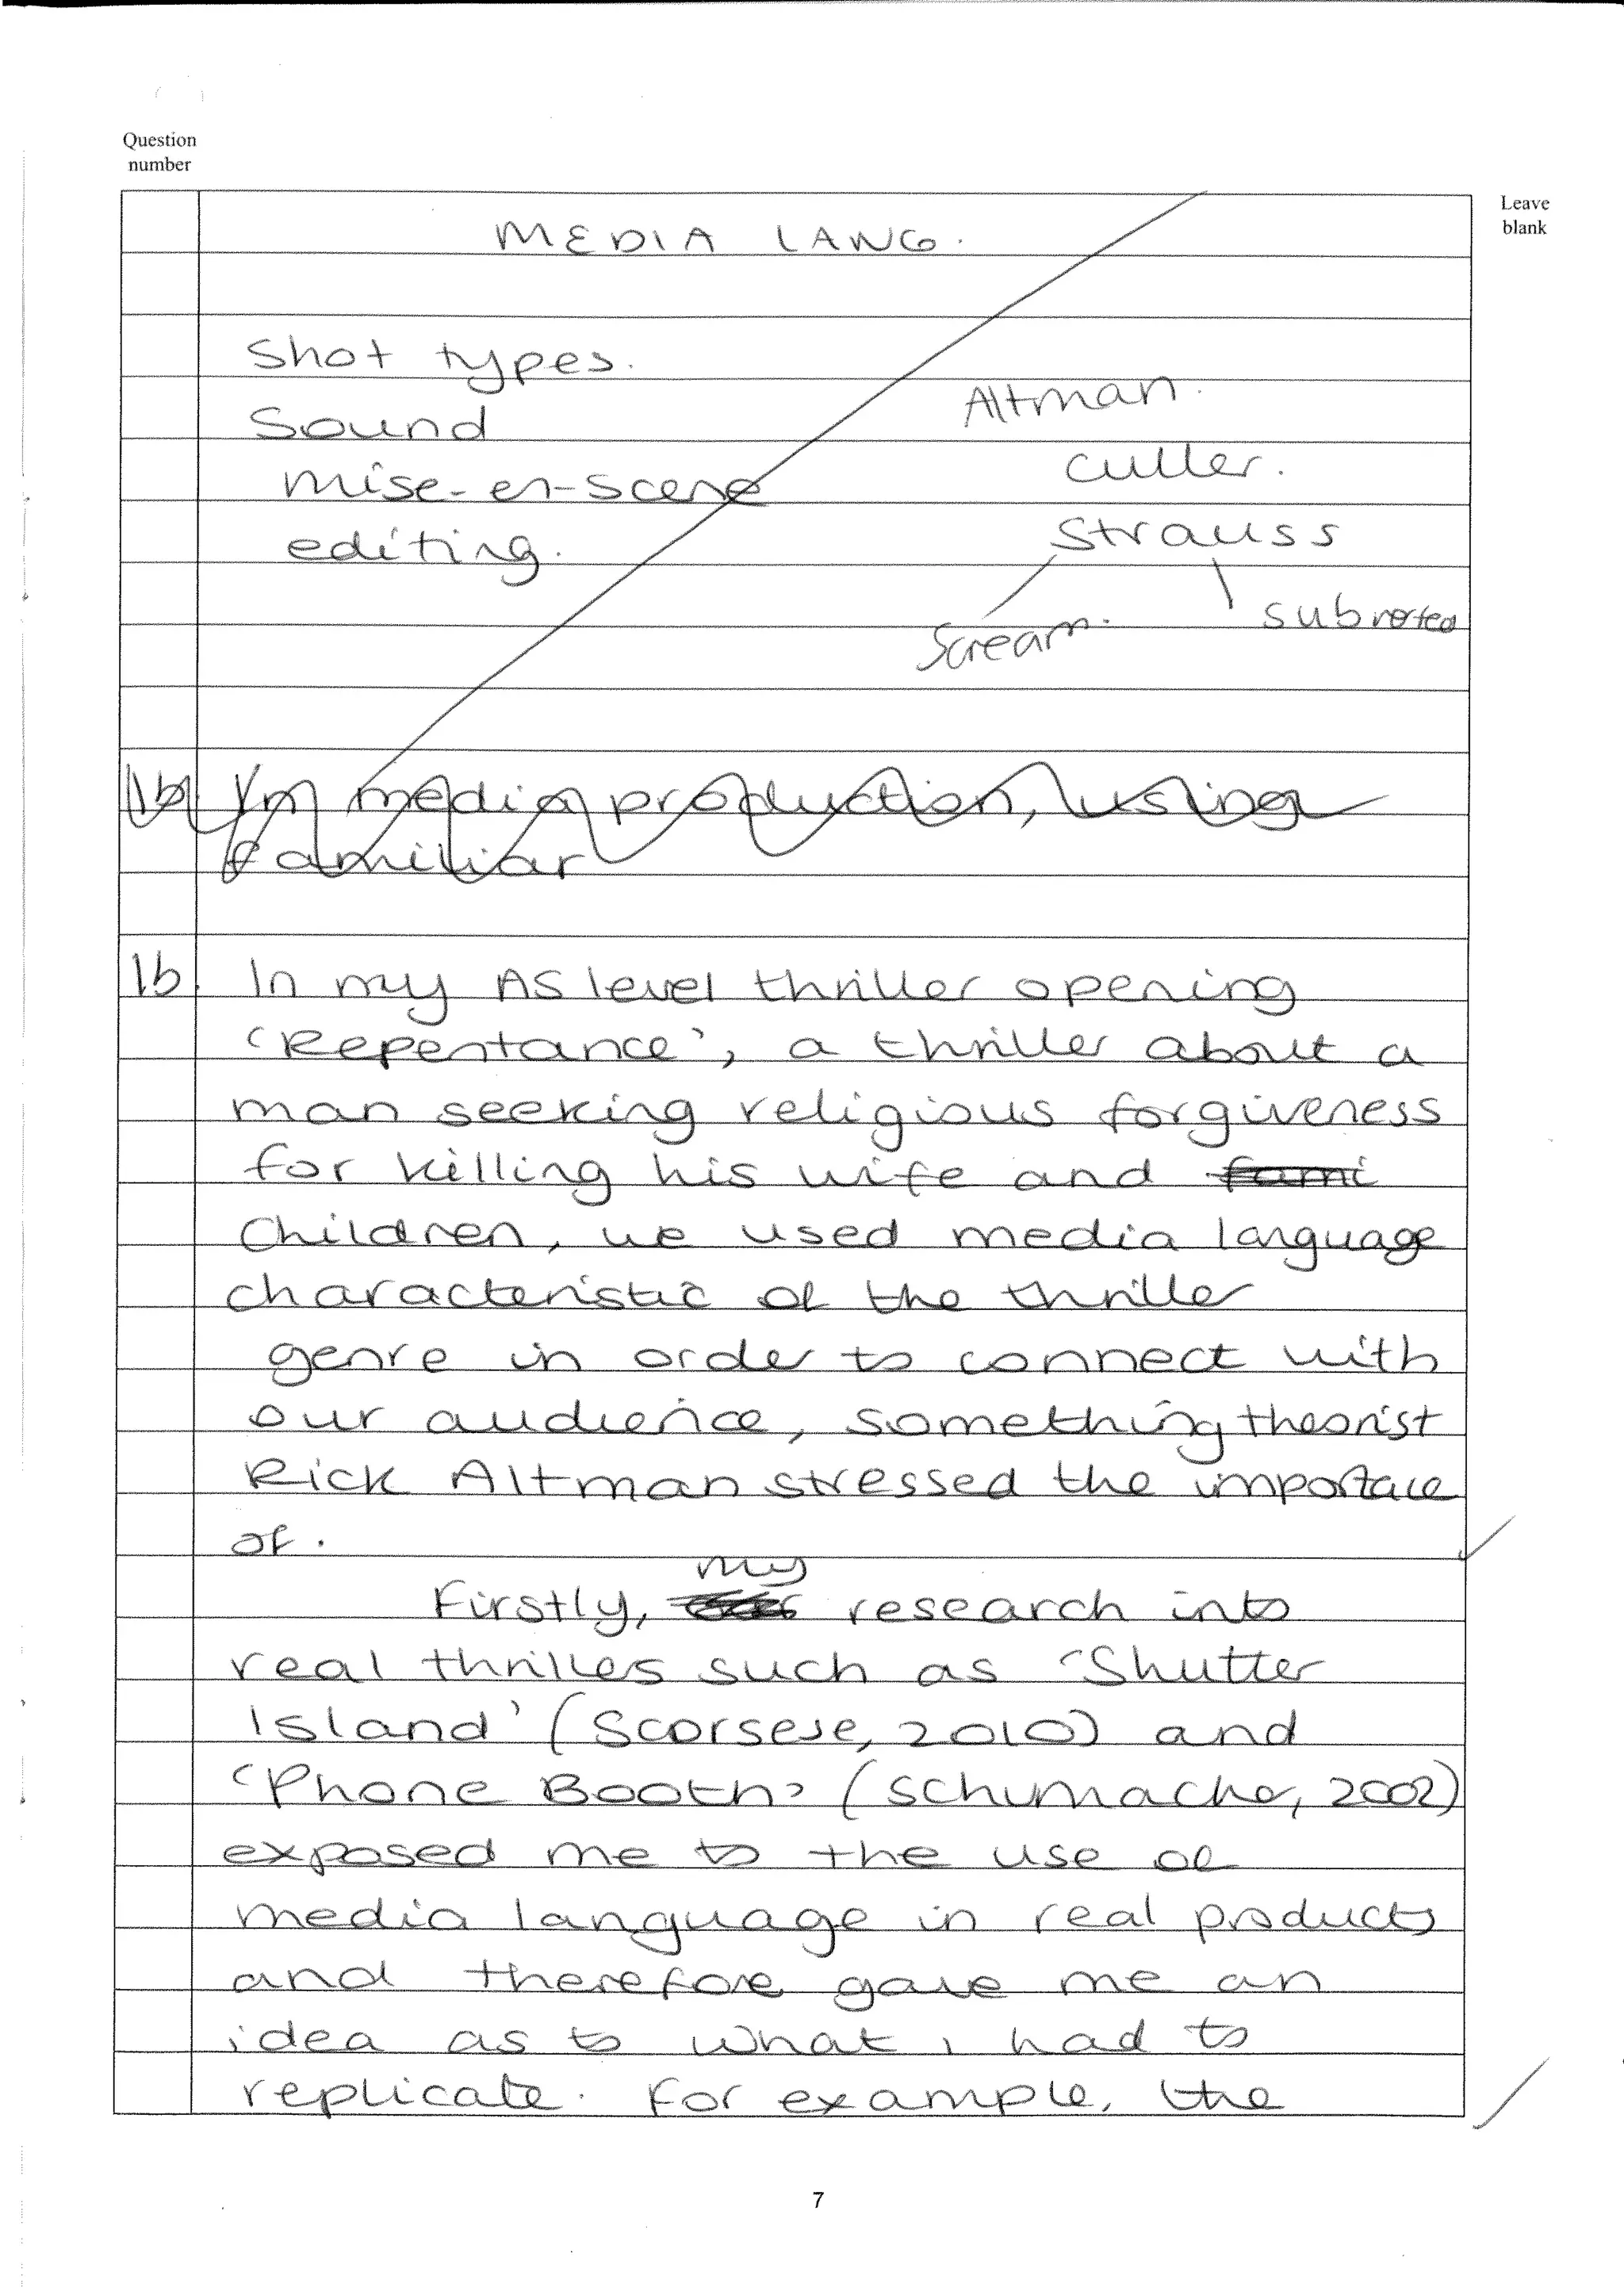 Question
number
Leave
blank
MEDIA LANG.
Shot types.
Sound
mise-en-scene
editing.
Altman.
Culler.
Strauss
Scream.
subverted
1b In media production, using
familiar
1b. In my AS level thriller opening
'Repentance', a thriller about a
man seeking religious forgiveness
for killing his wife and fami
Children, we used media language
characteristic of the thriller
genre in order to connect with
our audience, something theorist
Rick Altman stressed the importace
of.
my
Firstly, research into
real thrillers such as 'Shutter
Island' (Scorsese, 2010) and
'Phone Booth' (Schumacher, 2002)
exposed me to the use of
media language in real products
and therefore gave me an
idea as to what i had to
replicate. For example, the
7